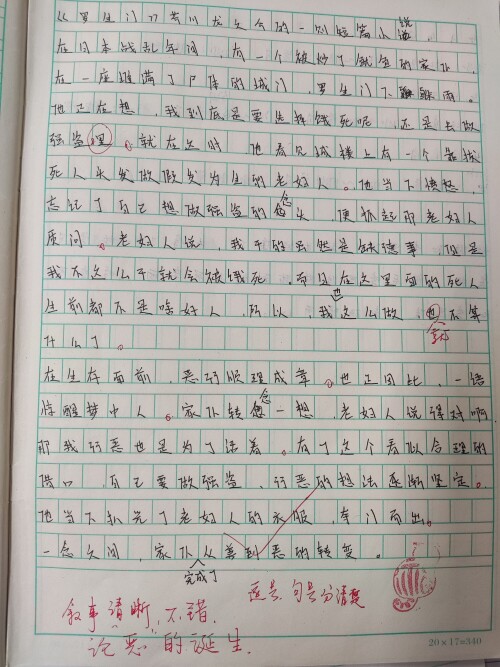 《罗生门》芥川龙之介的一则短篇小说,
在日本战乱年间,有一个被炒了鱿鱼的家仆,
在一座堆满了尸体的城门,罗生门下躲雨。
他正在想,我到底是要选择饿死呢,还是去做
强盗里。就在这时,他看见城楼上有一个靠拔
死人头发做假发为生的老妇人。他当下愤怒,
忘记了自己想做强盗的念头,便抓起那老妇人
质问。老妇人说,我干的虽然是缺德事,但是
我不这么干就会被饿死,而且在这里面的死人
生前都不是啥好人,所以,我这么做,也不算
什么了。
在生存面前,恶行顺理成章。也正因此,一语
惊醒梦中人。家仆转念一想,老妇人说得对啊,
那我行恶也是为了活着。有了这个看似合理的
借口,自己要做强盗、行恶的想法逐渐坚定。
他当下扒光了老妇人的衣服,夺门而出。
一念之间,家仆完成了从善到恶的转变。
逗号、句号分清楚
叙事清晰,不错.
论"恶"的诞生.
20×17=340